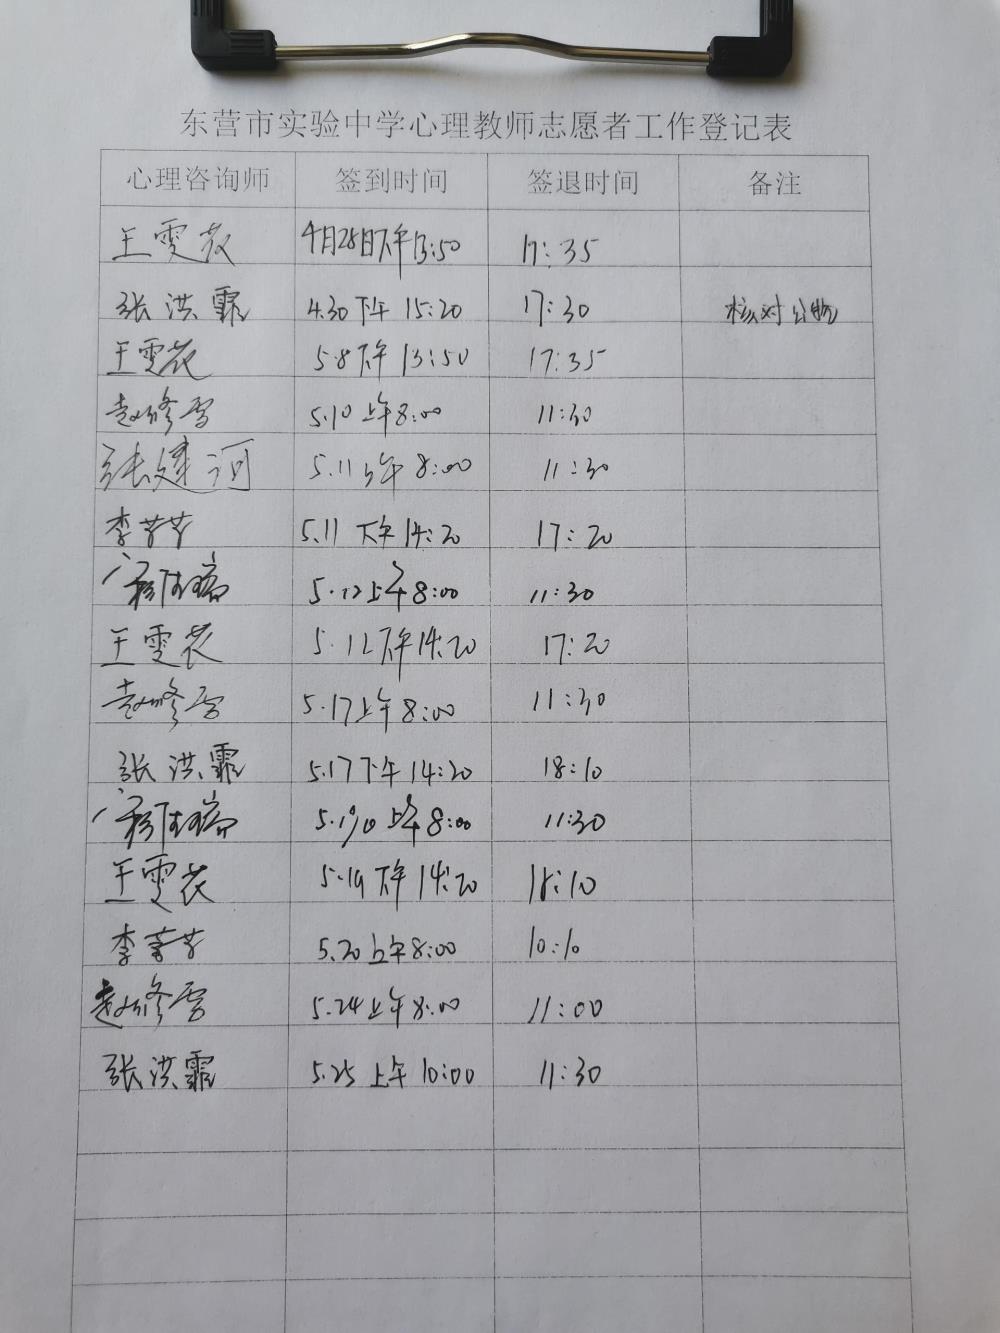 东营市实验中学心理教师志愿者工作登记表
心理咨询师 签到时间 签退时间 备注
王雯花 4月28日下午13:50 17:35
张洪霏 4.30下午 15:20 17:30 核对公物
王雯花 5.8下午 13:50 17:35
赵修雪 5.10上午8:00 11:30
张建河 5.11上午 8:00 11:30
李芳芳 5.11 下午 14:20 17:20
5.12上午8:00 11:30
王雯花 5.12下午14:20 17:20
赵修雪 5.17上午8:00 11:30
张洪霏 5.17下午 14:20 18:10
上午8:00 11:30
王雯花 5.19下午 14:20 18:10
李芳芳 5.20上午8:00 10:10
赵修雪 5.24上午8:00 11:00
张洪霏 5.25 上午 10:00 11:30